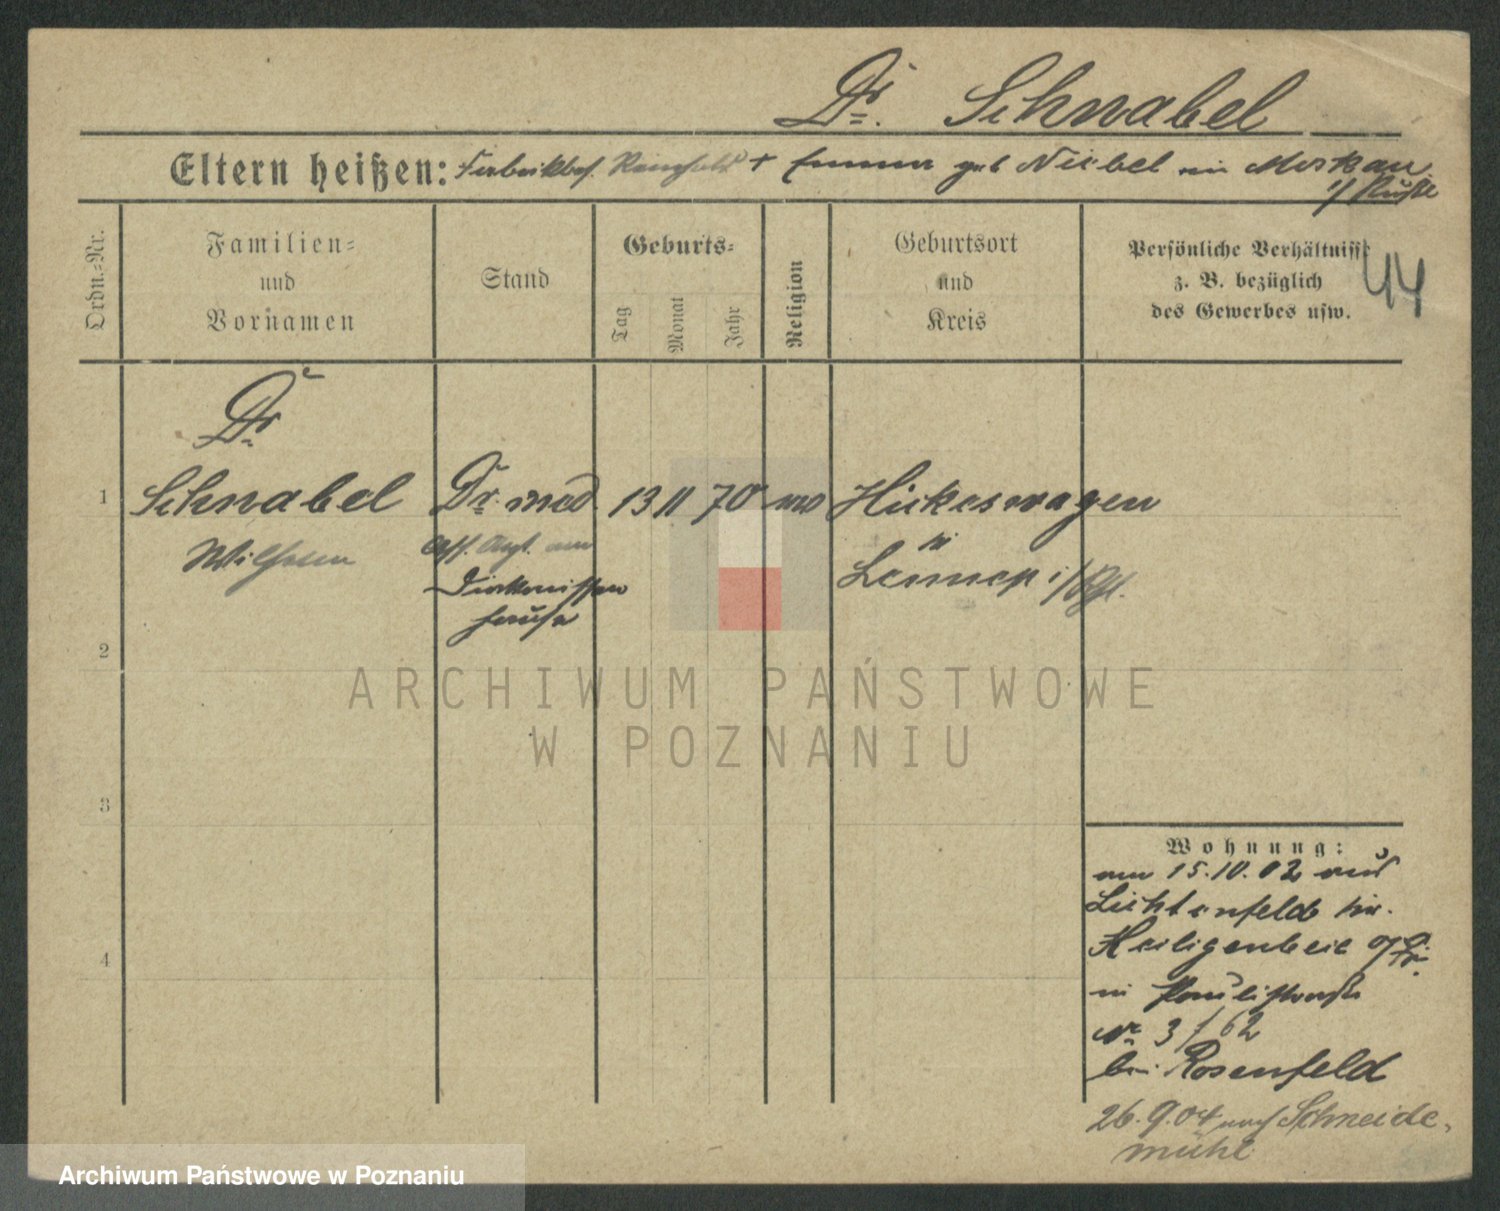 Dr. Schnabel
Eltern heißen: Fabrikbes. + Emma geb Niebel in Moskau
i/ Rußl
44
Ordn.-Nr.
Familien-
und
Vornamen
Stand
Geburts-
Tag
Monat
Jahr
Religion
Geburtsort
und
Kreis
Persönliche Verhältnisse
z. B. bezüglich
des Gewerbes usw.
Dr
1 Schnabel Dr. med. 13 11 70 Hückeswagen
Wilhelm Ass. Arzt am
Diakonissen
hause
Lennep i/Rhl.
2
3
4
Wohnung:
am 15.10.02 aus
Lichtenfelde Kr.
Heiligenbeil
in Paulistraße
Nr 3 / 62
bei Rosenfeld
26.9.04 nach Schneide-
mühl
ARCHIWUM PAŃSTWOWE
W POZNANIU
Archiwum Państwowe w Poznaniu